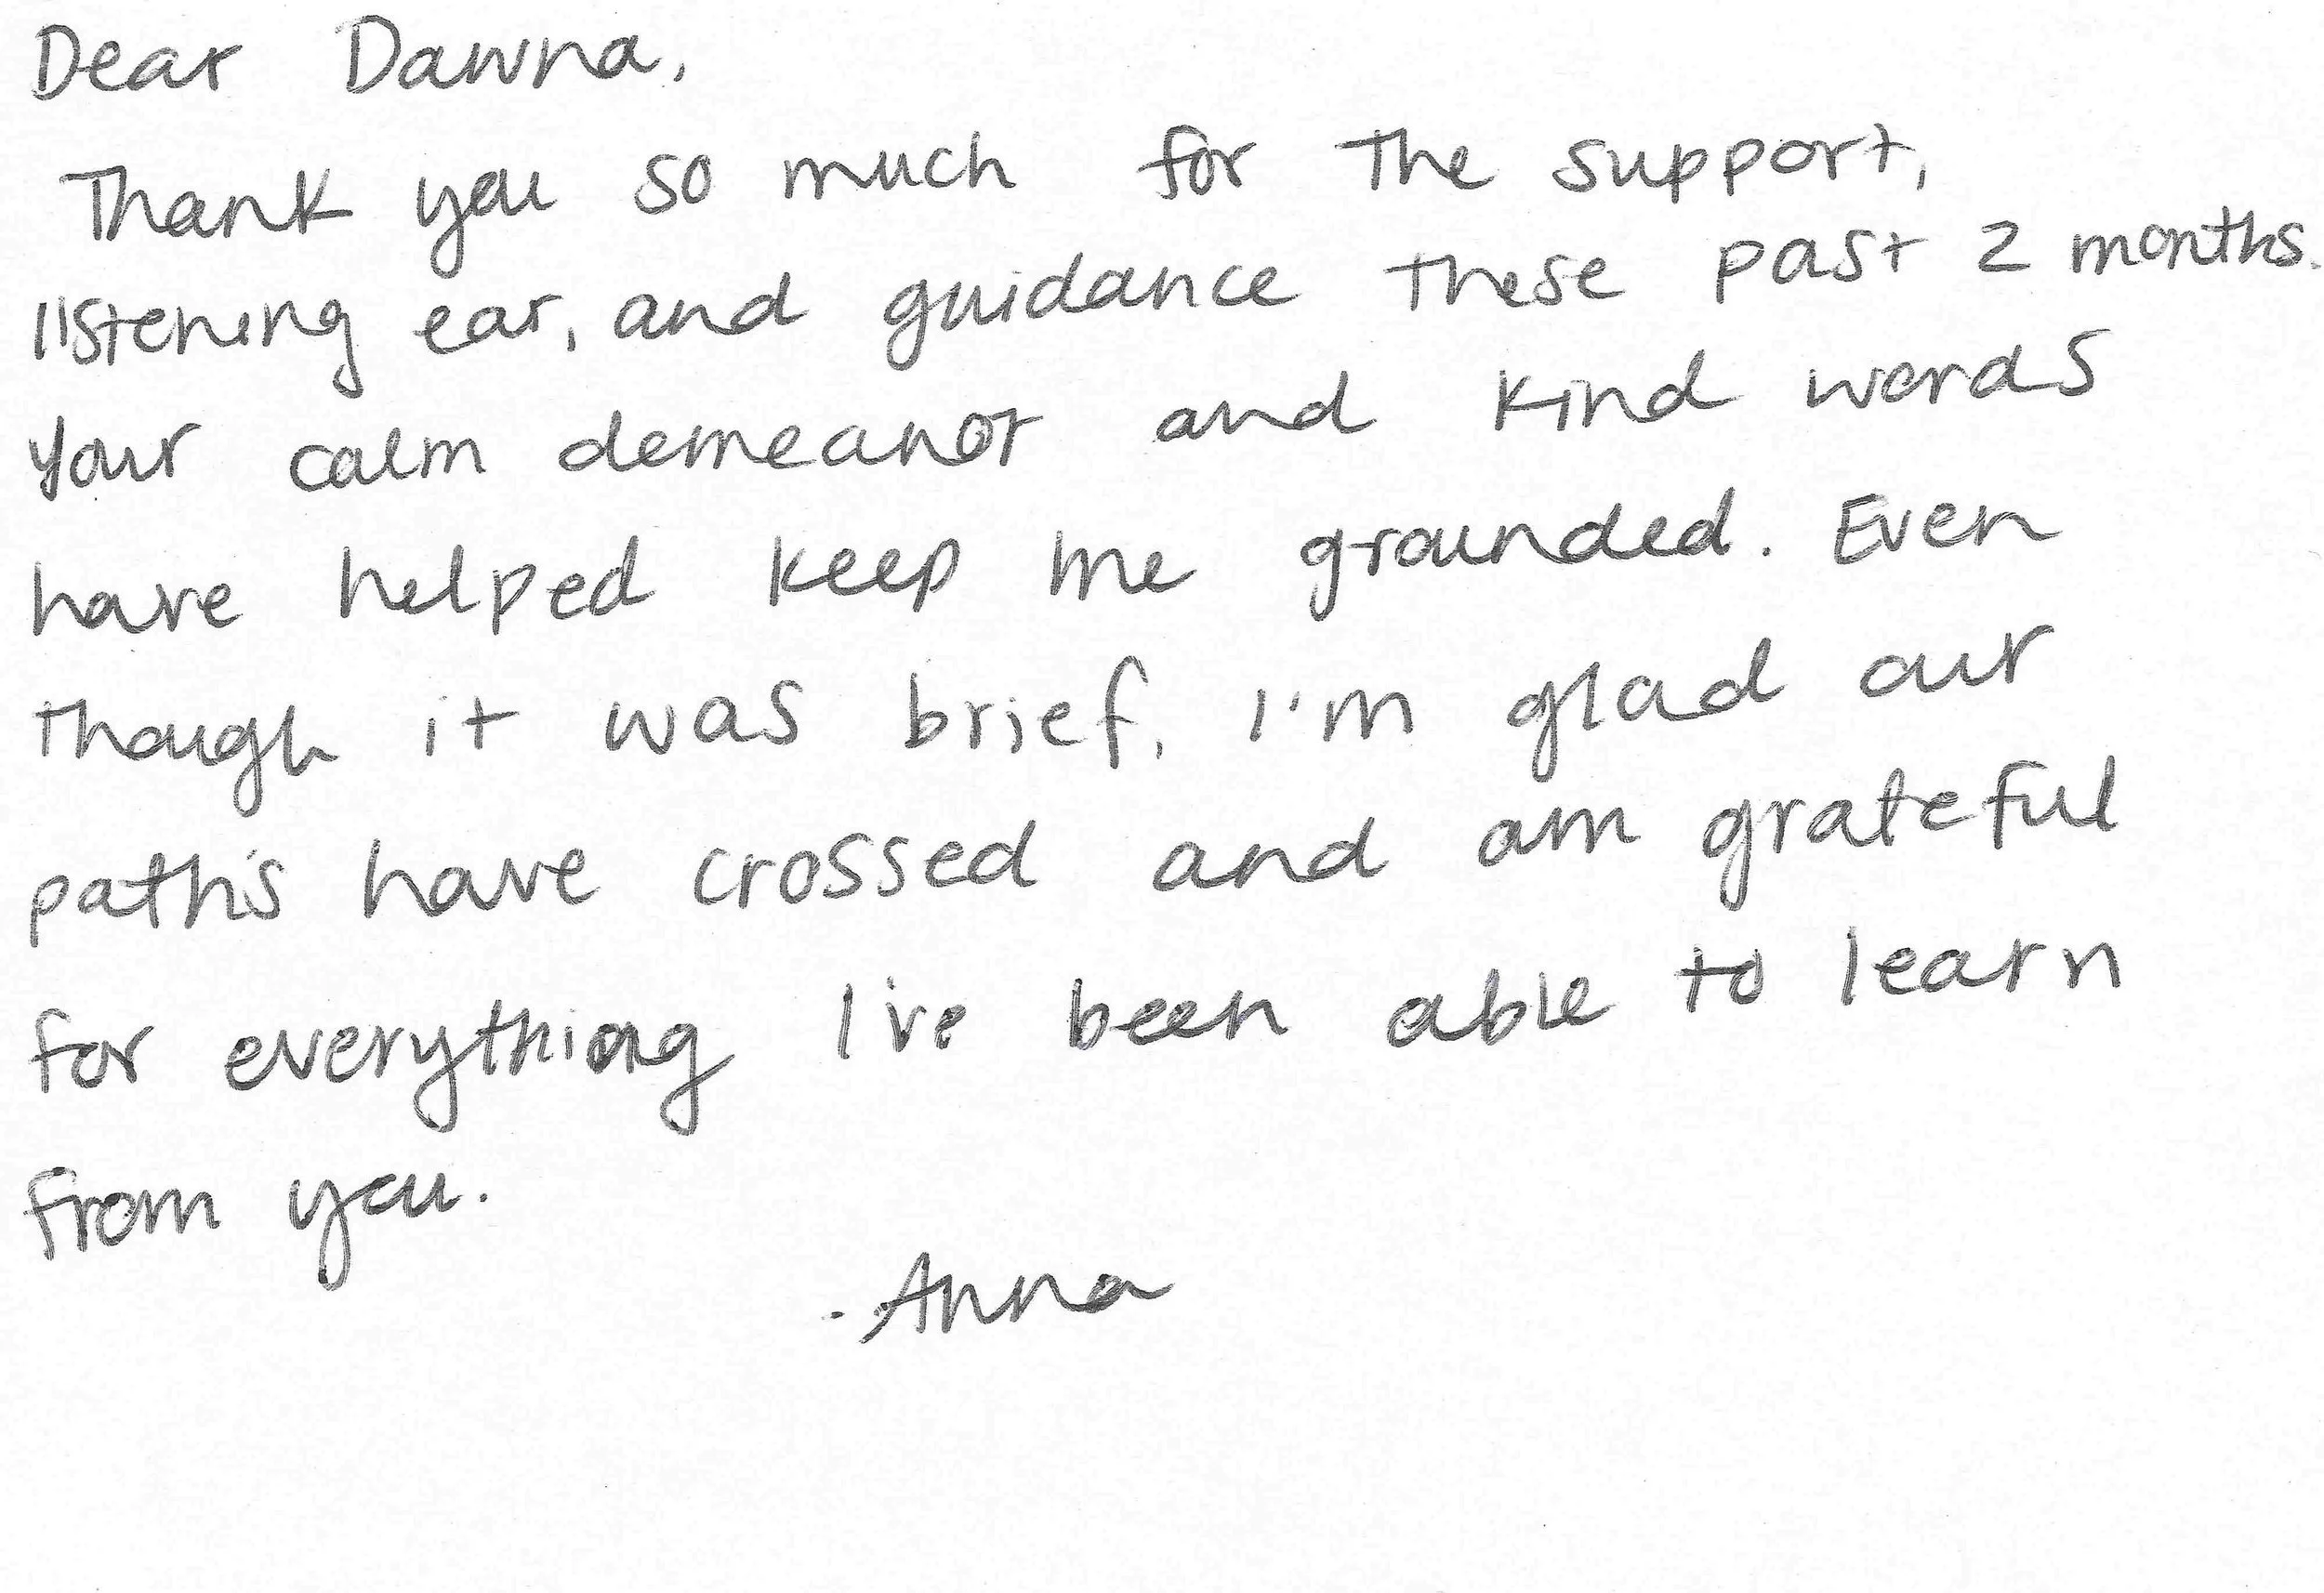 Dear Dawna,
Thank you so much for the support,
listening ear, and guidance these past 2 months.
Your calm demeanor and kind words
have helped keep me grounded. Even
though it was brief, I'm glad our
path's have crossed and am grateful
for everything I've been able to learn
from you.
-Anna